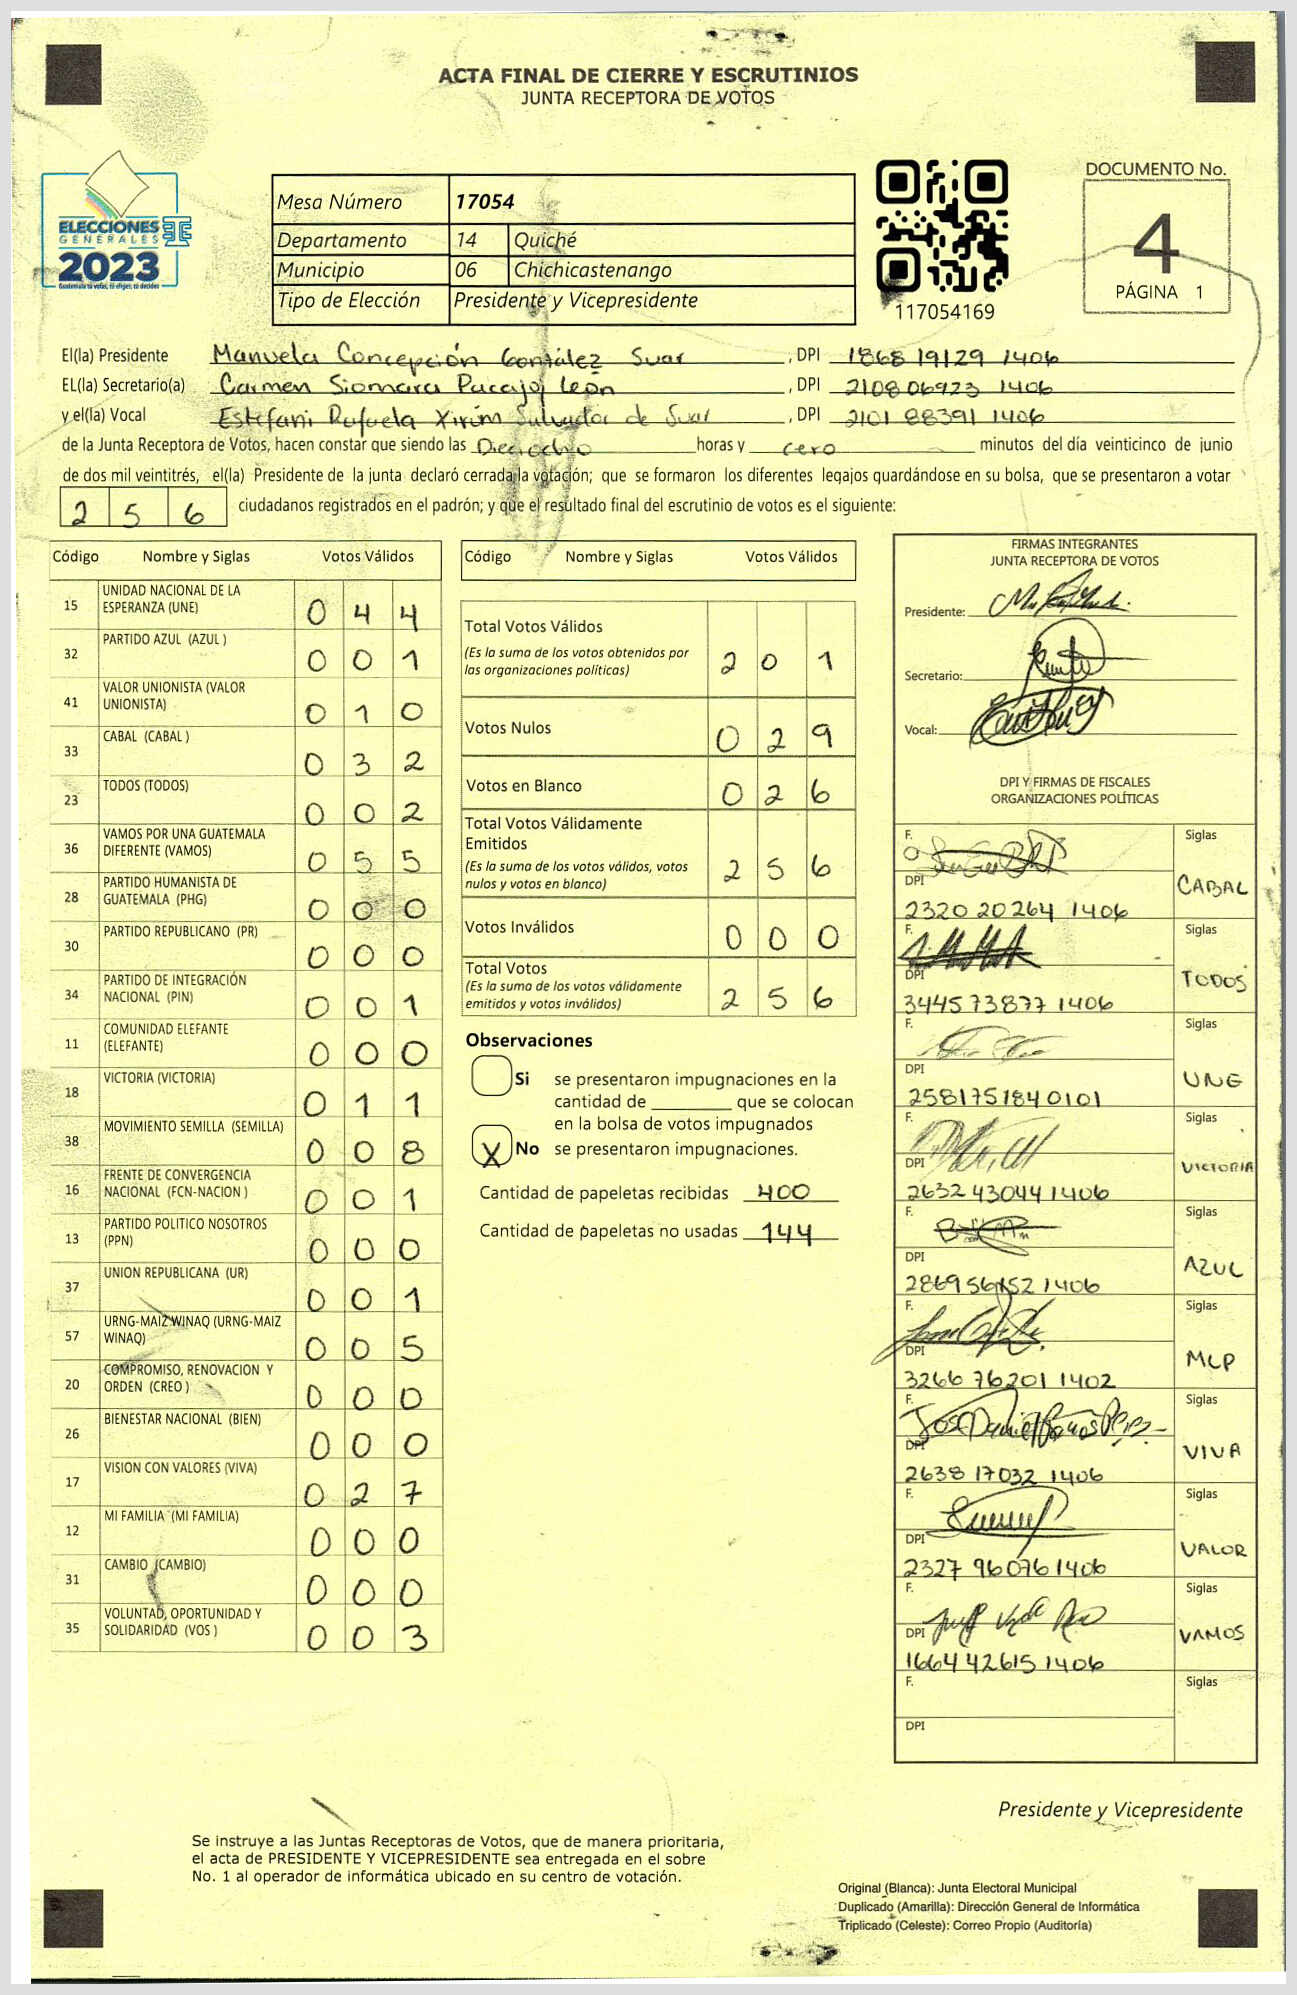 ACTA FINAL DE CIERRE Y ESCRUTINIOS
JUNTA RECEPTORA DE VOTOS
ELECCIONES
GENERALES
2023
Guatemala tú votas, tú eliges, tú decides
Mesa Número 17054
Departamento 14 Quiché
Municipio 06 Chichicastenango
Tipo de Elección Presidente y Vicepresidente
117054169
DOCUMENTO No.
4
PÁGINA 1
El(la) Presidente Manuela Concepción González Suar , DPI 1868 19129 1406
EL(la) Secretario(a) Carmen Siomara Pacajoj León , DPI 2108 06923 1406
y el(la) Vocal Estefani Rafaela Xirúm Salvador de Suar , DPI 2101 88391 1406
de la Junta Receptora de Votos, hacen constar que siendo las Dieciocho horas y cero minutos del día veinticinco de junio
de dos mil veintitrés, el(la) Presidente de la junta declaró cerrada la votación; que se formaron los diferentes legajos guardándose en su bolsa, que se presentaron a votar
2 5 6 ciudadanos registrados en el padrón; y que el resultado final del escrutinio de votos es el siguiente:
Código Nombre y Siglas Votos Válidos
15 UNIDAD NACIONAL DE LA
ESPERANZA (UNE) 0 4 4
32 PARTIDO AZUL (AZUL ) 0 0 1
41 VALOR UNIONISTA (VALOR
UNIONISTA) 0 1 0
33 CABAL (CABAL ) 0 3 2
23 TODOS (TODOS) 0 0 2
36 VAMOS POR UNA GUATEMALA
DIFERENTE (VAMOS) 0 5 5
28 PARTIDO HUMANISTA DE
GUATEMALA (PHG) 0 0 0
30 PARTIDO REPUBLICANO (PR) 0 0 0
34 PARTIDO DE INTEGRACIÓN
NACIONAL (PIN) 0 0 1
11 COMUNIDAD ELEFANTE
(ELEFANTE) 0 0 0
18 VICTORIA (VICTORIA) 0 1 1
38 MOVIMIENTO SEMILLA (SEMILLA) 0 0 8
16 FRENTE DE CONVERGENCIA
NACIONAL (FCN-NACION ) 0 0 1
13 PARTIDO POLITICO NOSOTROS
(PPN) 0 0 0
37 UNION REPUBLICANA (UR) 0 0 1
57 URNG-MAIZ WINAQ (URNG-MAIZ
WINAQ) 0 0 5
20 COMPROMISO, RENOVACION Y
ORDEN (CREO ) 0 0 0
26 BIENESTAR NACIONAL (BIEN) 0 0 0
17 VISION CON VALORES (VIVA) 0 2 7
12 MI FAMILIA (MI FAMILIA) 0 0 0
31 CAMBIO (CAMBIO) 0 0 0
35 VOLUNTAD, OPORTUNIDAD Y
SOLIDARIDAD (VOS ) 0 0 3
Código Nombre y Siglas Votos Válidos
Total Votos Válidos
(Es la suma de los votos obtenidos por
las organizaciones políticas) 2 0 1
Votos Nulos 0 2 9
Votos en Blanco 0 2 6
Total Votos Válidamente
Emitidos
(Es la suma de los votos válidos, votos
nulos y votos en blanco) 2 5 6
Votos Inválidos 0 0 0
Total Votos
(Es la suma de los votos válidamente
emitidos y votos inválidos) 2 5 6
Observaciones
Si se presentaron impugnaciones en la
cantidad de ________ que se colocan
en la bolsa de votos impugnados
X No se presentaron impugnaciones.
Cantidad de papeletas recibidas 400
Cantidad de papeletas no usadas 144
FIRMAS INTEGRANTES
JUNTA RECEPTORA DE VOTOS
Presidente:
Secretario:
Vocal:
DPI Y FIRMAS DE FISCALES
ORGANIZACIONES POLÍTICAS
F. Siglas
DPI CABAL
2320 20264 1406
F. Siglas
DPI TODOS
3445 73877 1406
F. Siglas
DPI UNE
2581751840101
F. Siglas
DPI VICTORIA
2632 43044 1406
F. Siglas
DPI AZUL
1406
F. Siglas
DPI MLP
3266 76201 1402
F. Siglas
DPI VIVA
2638 17032 1406
F. Siglas
DPI VALOR
2327 96076 1406
F. Siglas
DPI VAMOS
1664 42615 1406
F. Siglas
DPI
Presidente y Vicepresidente
Se instruye a las Juntas Receptoras de Votos, que de manera prioritaria,
el acta de PRESIDENTE Y VICEPRESIDENTE sea entregada en el sobre
No. 1 al operador de informática ubicado en su centro de votación.
Original (Blanca): Junta Electoral Municipal
Duplicado (Amarilla): Dirección General de Informática
Triplicado (Celeste): Correo Propio (Auditoría)